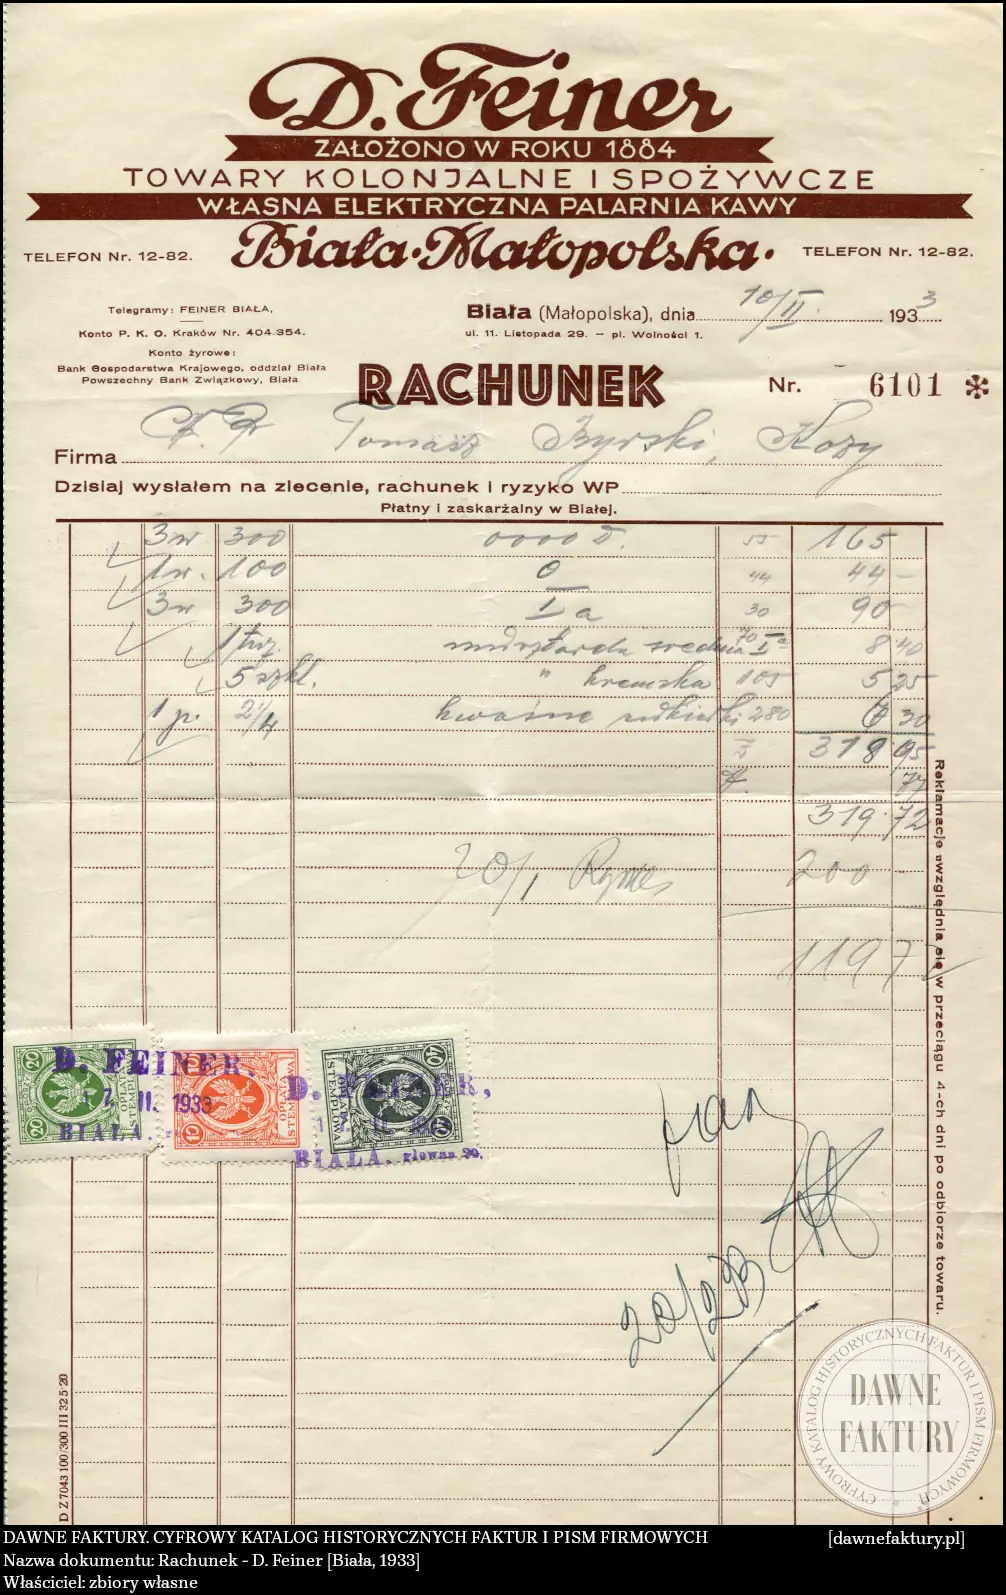 D. Feiner
ZAŁOŻONO W ROKU 1884
TOWARY KOLONJALNE I SPOŻYWCZE
WŁASNA ELEKTRYCZNA PALARNIA KAWY
TELEFON Nr. 12-82. Biała·Małopolska· TELEFON Nr. 12-82.
Telegramy: FEINER BIAŁA,
Konto P. K. O. Kraków Nr. 404.354.
Konto żyrowe:
Bank Gospodarstwa Krajowego, oddział Biała
Powszechny Bank Związkowy, Biała
Biała (Małopolska), dnia 10/II. 1933
ul. 11. Listopada 29. – pl. Wolności 1.
RACHUNEK Nr. 6101
Firma Tomasz Byrski, Kozy
Dzisiaj wysłałem na zlecenie, rachunek i ryzyko WP
Płatny i zaskarżalny w Białej.
3 w 300 0000 55 165
1 w. 100 0 44 44 –
3 w 300 I a 30 90
średnia 70 8 40
5 szkl. " kremska 105 5 25
1 p. 2 1/4 kwaśne 280 6 30
318 95
77
319 72
20/1 200
119 72
Reklamacje uwzględnia się w przeciągu 4-ch dni po odbiorze towaru.
20 20
OPŁATA STEMPLOWA
10 10
OPŁATA STEMPLOWA
40 40
OPŁATA STEMPLOWA
D. FEINER.
17. II. 1933
BIAŁA.
D. FEINER,
BIAŁA. główna 20.
D Z 7043 100/300 III 32 5·20
DAWNE FAKTURY
CYFROWY KATALOG HISTORYCZNYCH FAKTUR I PISM FIRMOWYCH
DAWNE FAKTURY. CYFROWY KATALOG HISTORYCZNYCH FAKTUR I PISM FIRMOWYCH [dawnefaktury.pl]
Nazwa dokumentu: Rachunek - D. Feiner [Biała, 1933]
Właściciel: zbiory własne